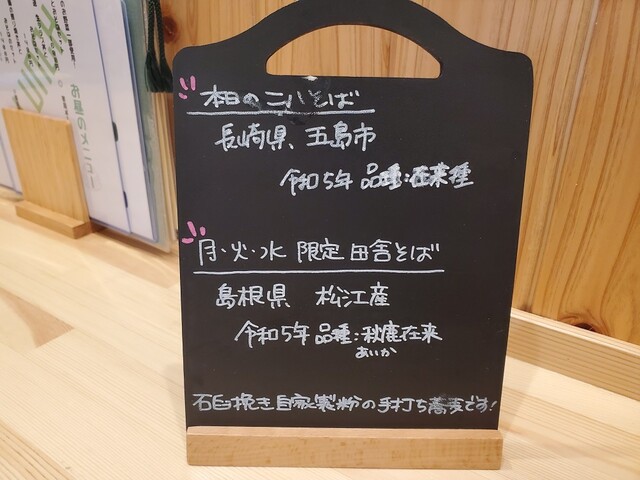 本日の二八そば
長崎県 五島市
令和5年 品種:在来種
月・火・水 限定 田舎そば
島根県 松江産
令和5年 品種:秋鹿在来
あいか
石臼挽き自家製粉の手打ち蕎麦です!
LUNCH
お昼のメニュー